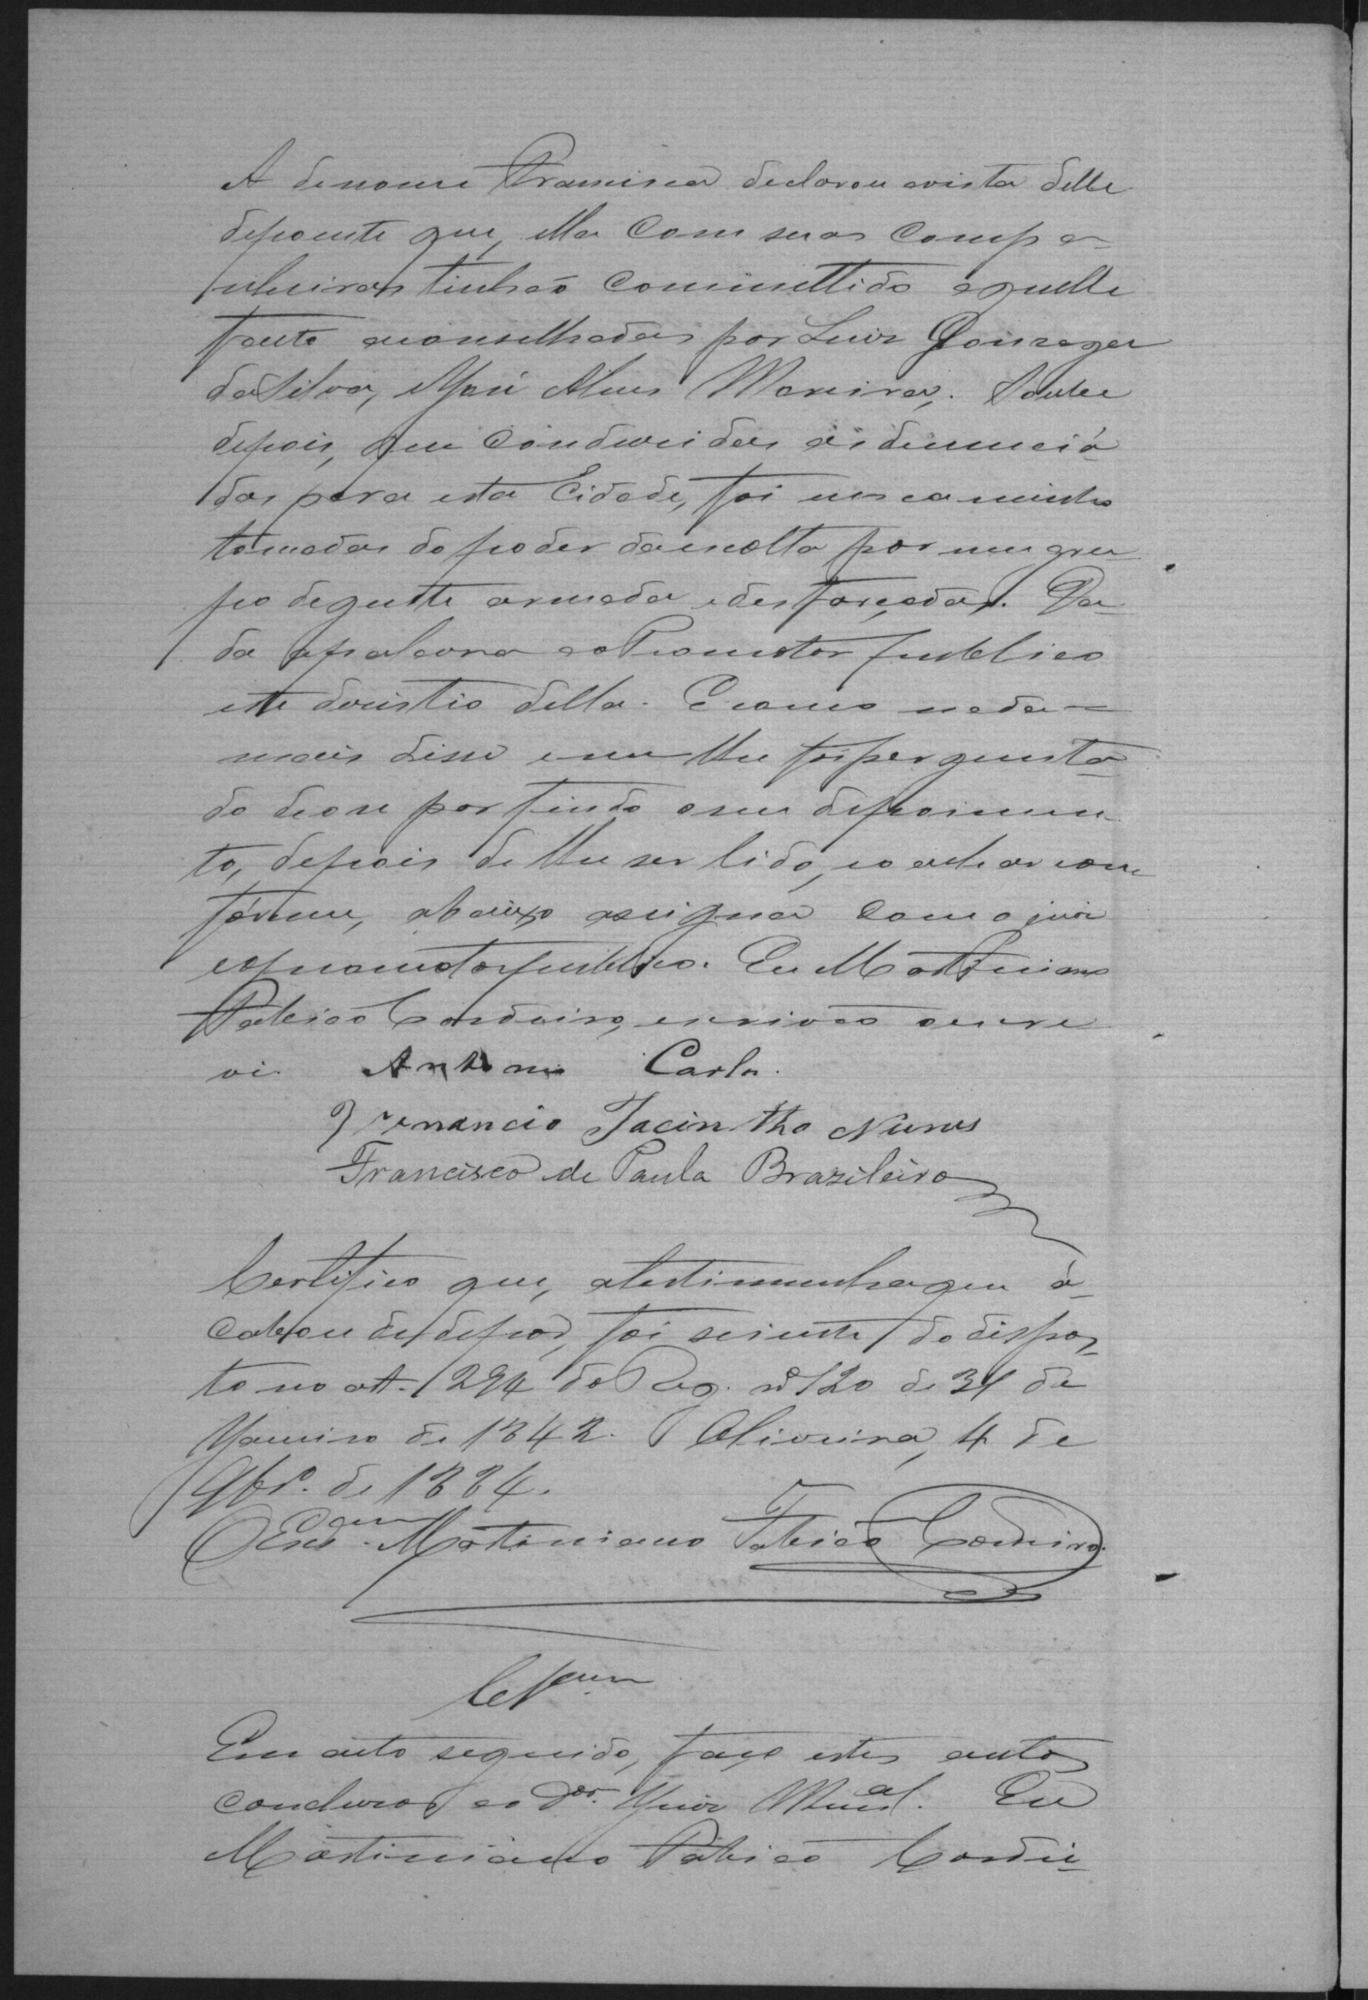 A de nome Francisca declarou avista delle
depoente que, ella com suas compa-
nheiras tinhão commettido aquelle
facto aconselhadas por Luiz Gonzaga
da Silva, e José Alves Moreira. Soube
depois, que conduzidas as denunciá-
das para esta Cidade, foi no caminho
tomadas do poder da escolta por um gru-
po de gente armada e desfarçada. Da-
da apalavra ao Promotor publico
este desistio della. E como nada
mais disse e nem lhe foi pergunta-
do deose por findo o seu depoimen-
to, depois de lhe ser lido, e o achar con-
fórme, abaixo assigna com o juiz
e promotor publico. Eu Martiniano
Fabico Cordeiro, escrivão o escre
vi. Antonio Carlos.
Venancio Jacintho Nunes
Francisco de Paula Brazileiro
Certifico que, a testimunha que á-
cabou de depor, foi sciente do dispos-
to no art. 294 do Reg. nº 120 de 31 de
Janeiro de 1842. Oliveira, 4 de
9brº. de 1884.
O Escram Martiniano Fabico Cordeiro.
Clsam
Em acto seguido, faço estes autos
concluzos ao Dor. Juiz Munal. Eu
Martiniano Fabico Cordei-